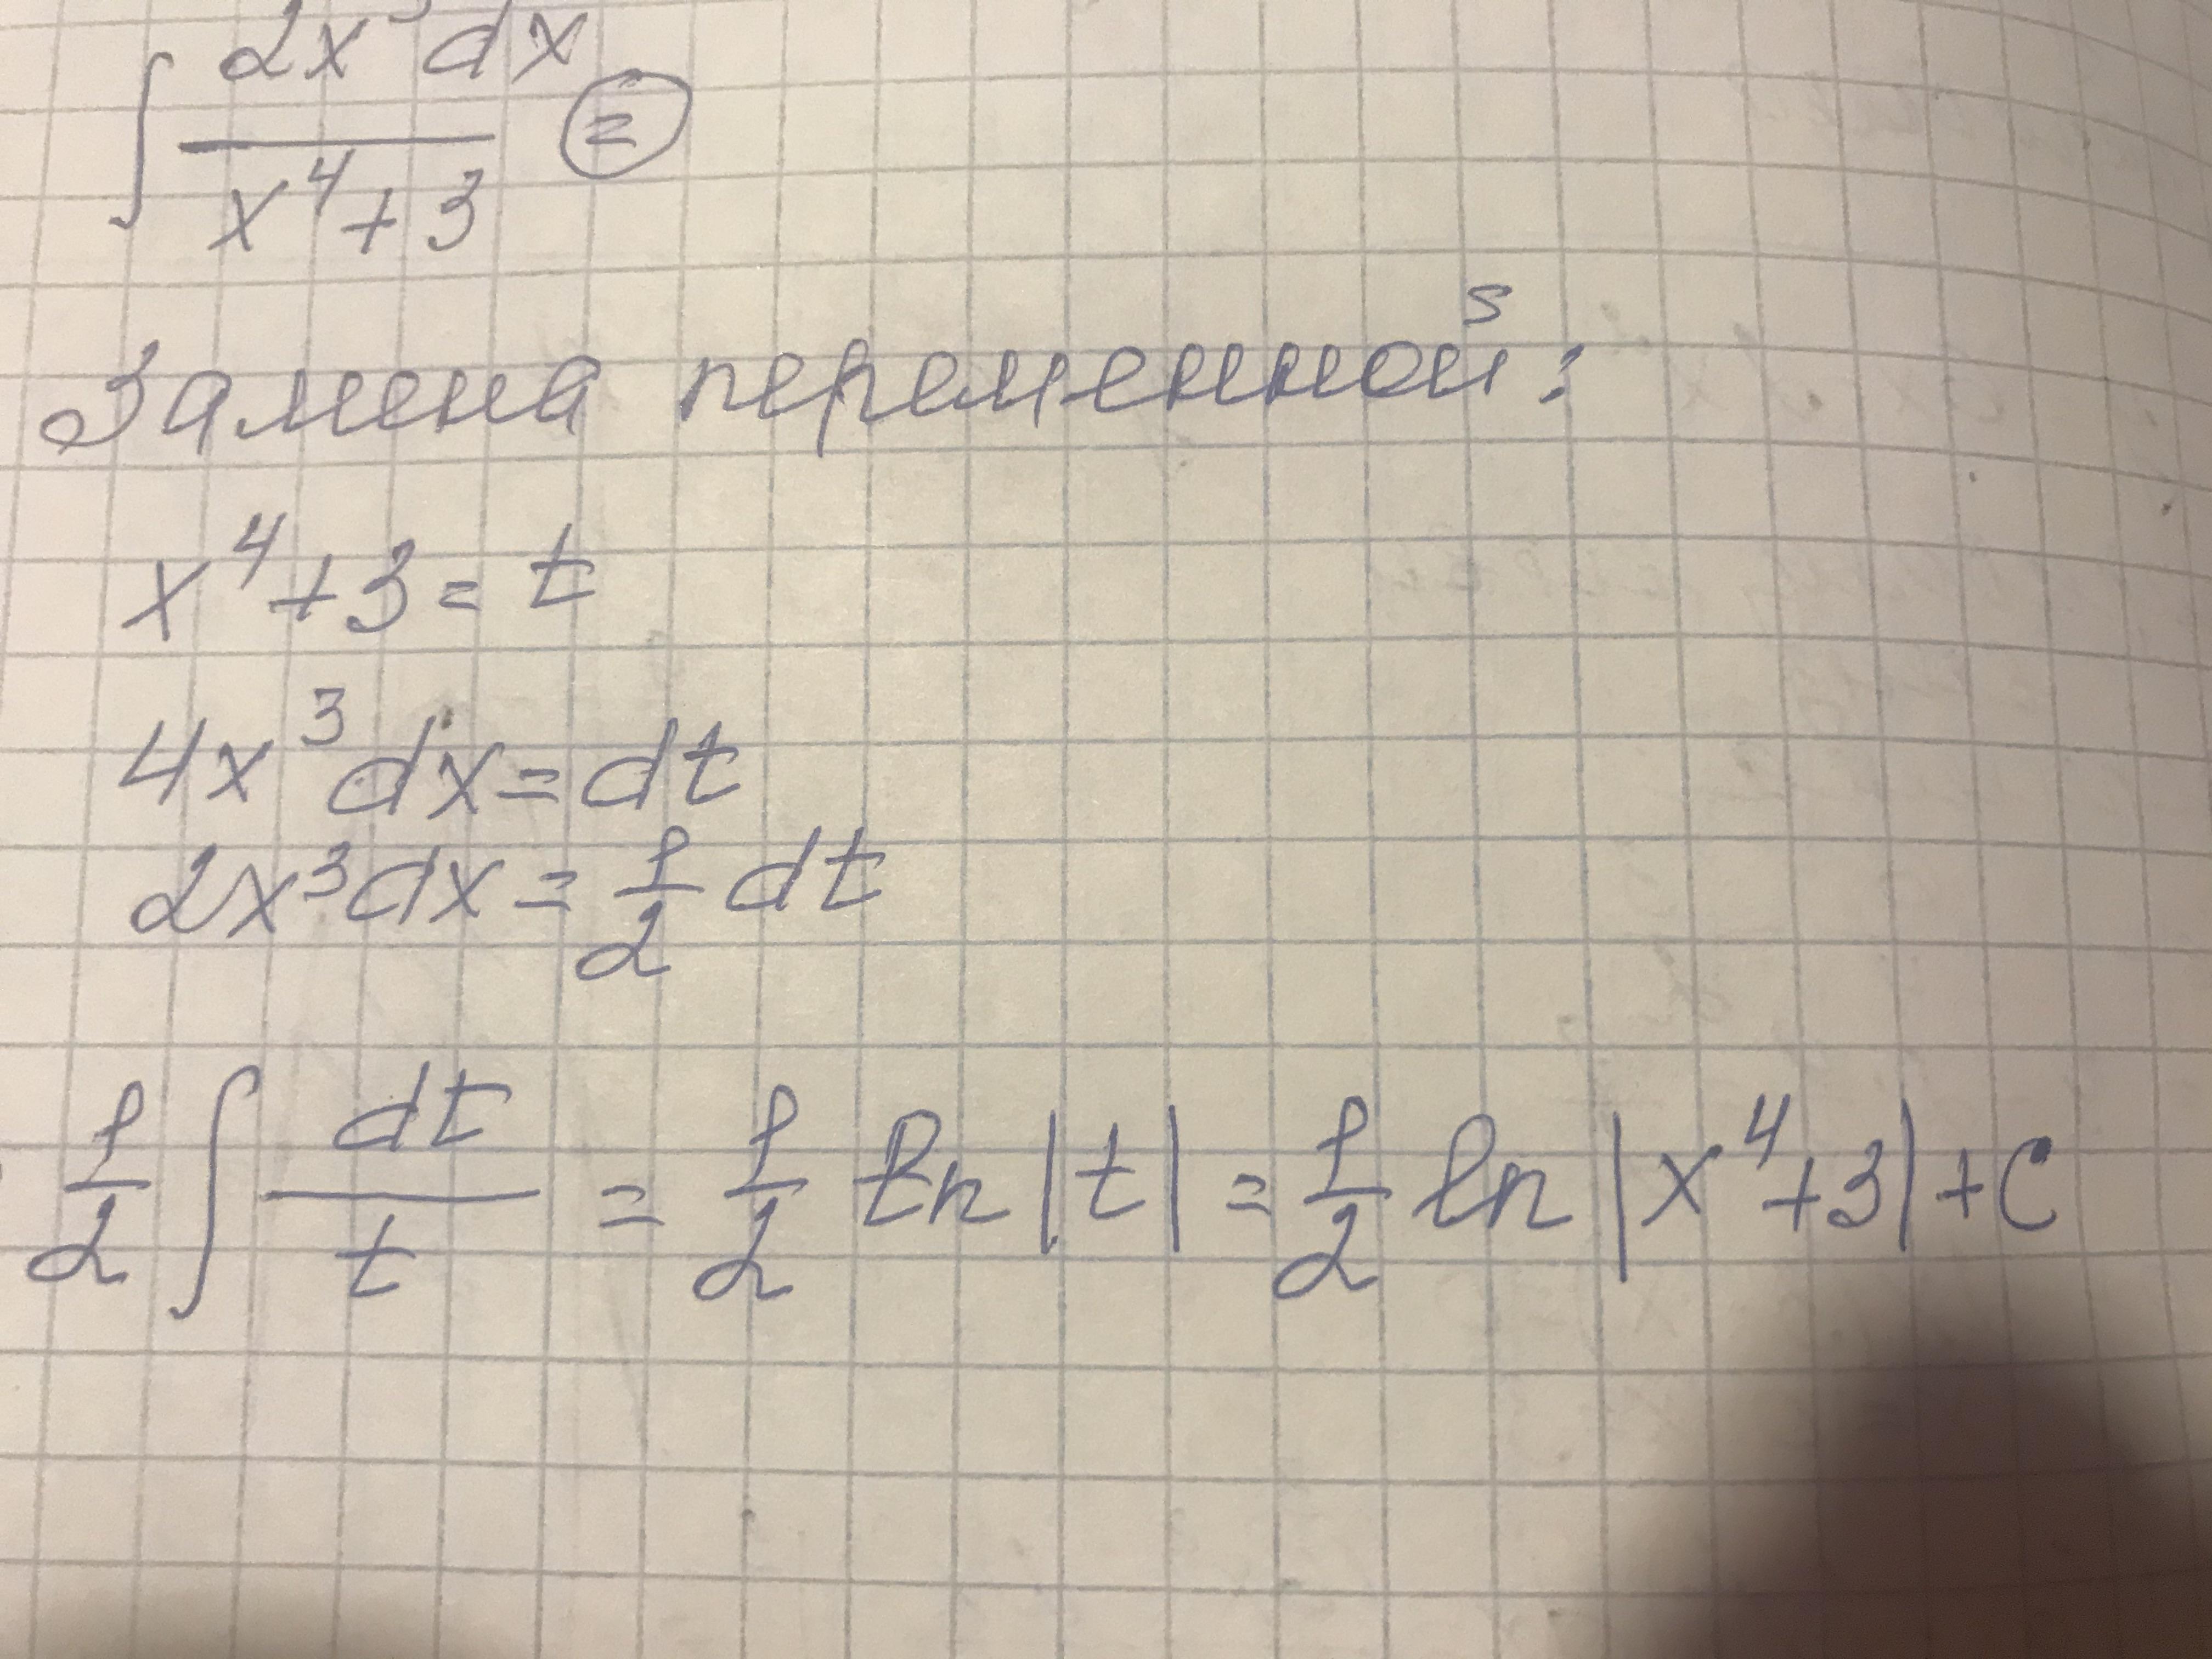 ∫ 2x³dx / x⁴+3 =
Замена переменной:
x⁴+3=t
4x³dx=dt
2x³dx=1/2 dt
1/2 ∫ dt/t = 1/2 ln|t| = 1/2 ln|x⁴+3|+C